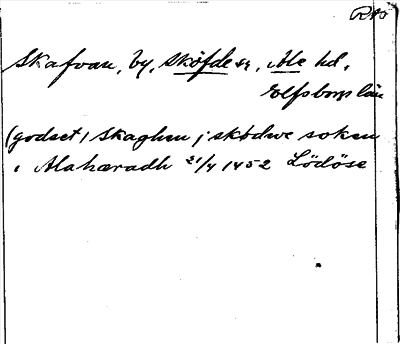 RAp
Skafvan, by, Sköfde sn, Ale hd,
Elfsborgs län
(godset) Skaghen j sködwe soken
i Alahæradh 21/4 1452 Lödöse